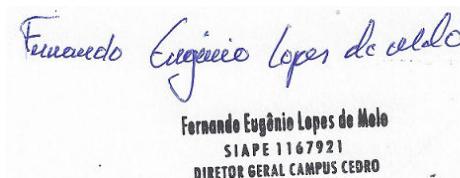 Fernando Eugênio Lopes de Melo
Fernando Eugênio Lopes de Melo
SIAPE 1167921
DIRETOR GERAL CAMPUS CEDRO